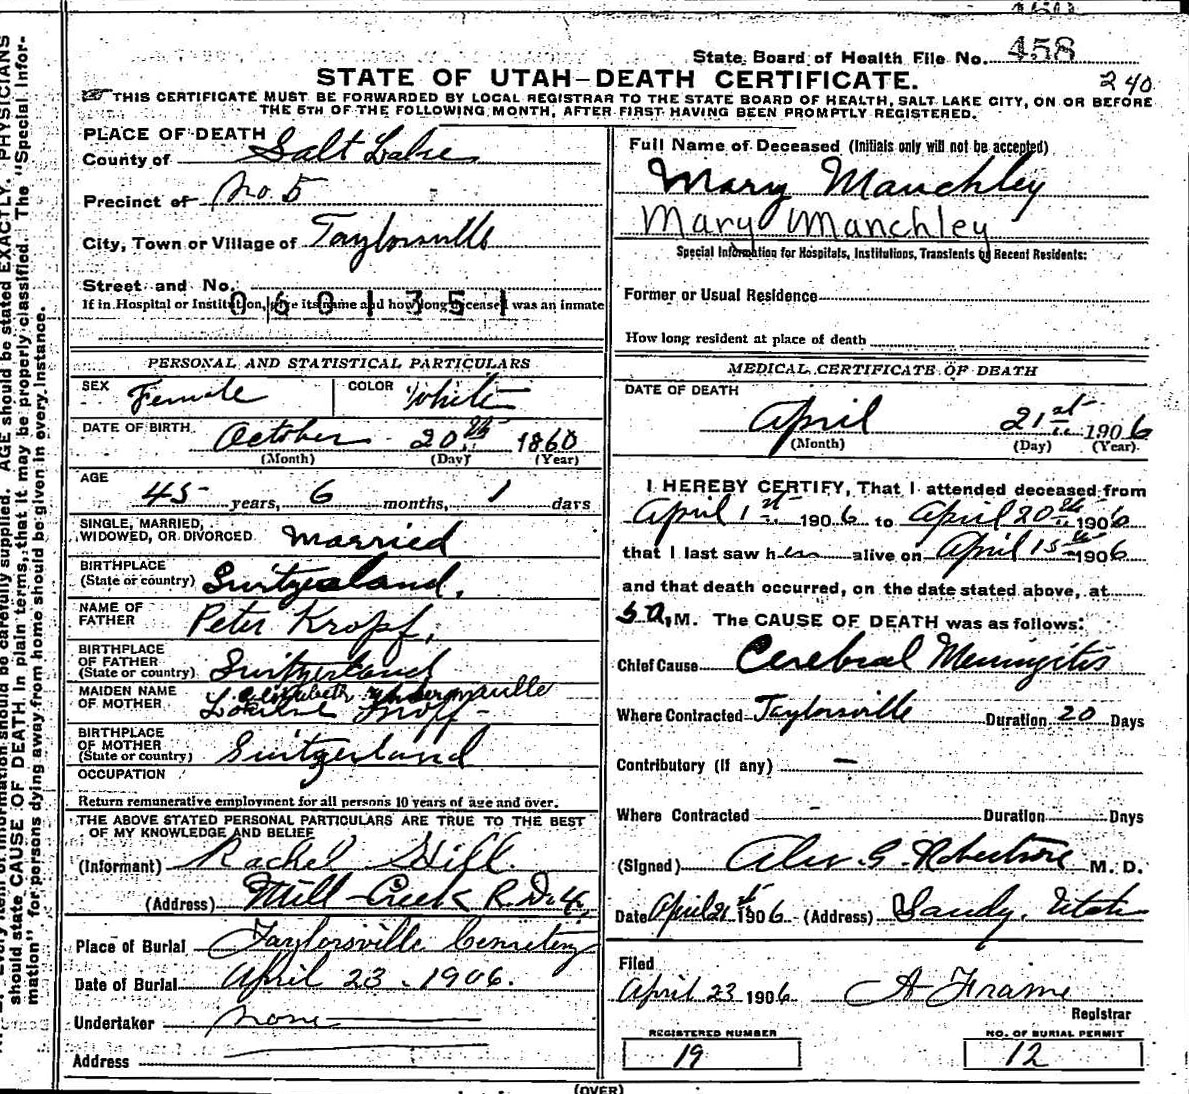 State Board of Health File No. 458
STATE OF UTAH—DEATH CERTIFICATE.
240
THIS CERTIFICATE MUST BE FORWARDED BY LOCAL REGISTRAR TO THE STATE BOARD OF HEALTH, SALT LAKE CITY, ON OR BEFORE
THE 5TH OF THE FOLLOWING MONTH, AFTER FIRST HAVING BEEN PROMPTLY REGISTERED.
PLACE OF DEATH
County of Salt Lake
Precinct of No. 5
City, Town or Village of Taylorsville
Street and No.
If in Hospital or Institution, give its name and how long deceased was an inmate
0601351
PERSONAL AND STATISTICAL PARTICULARS
SEX Female COLOR White
DATE OF BIRTH October 20th 1860
(Month) (Day) (Year)
AGE
45 years, 6 months, 1 days
SINGLE, MARRIED,
WIDOWED, OR DIVORCED married
BIRTHPLACE
(State or country) Switzerland.
NAME OF
FATHER Peter Kropf.
BIRTHPLACE
OF FATHER
(State or country) Switzerland
MAIDEN NAME
OF MOTHER Elizabeth
Kropf
BIRTHPLACE
OF MOTHER
(State or country) Switzerland
OCCUPATION
Return remunerative employment for all persons 10 years of age and over.
THE ABOVE STATED PERSONAL PARTICULARS ARE TRUE TO THE BEST
OF MY KNOWLEDGE AND BELIEF
(Informant) Rachel Hill.
(Address) Mill Creek R.D. 4.
Place of Burial Taylorsville Cemetery
Date of Burial April 23. 1906.
Undertaker none
Address
Full Name of Deceased (Initials only will not be accepted)
Mary Mauchley
Mary Manchley
Special Information for Hospitals, Institutions, Transients or Recent Residents:
Former or Usual Residence
How long resident at place of death
MEDICAL CERTIFICATE OF DEATH
DATE OF DEATH
April 21st 1906
(Month) (Day) (Year)
I HEREBY CERTIFY, That I attended deceased from
April 1st 1906 to April 20th 1906
that I last saw her alive on April 15th 1906
and that death occurred, on the date stated above, at
5 A. M. The CAUSE OF DEATH was as follows:
Chief Cause Cerebral Meningitis
Where Contracted Taylorsville Duration 20 Days
Contributory (If any) —
Where Contracted - Duration Days
(Signed) Alex. G. Robertson M. D.
Date April 21st 1906 (Address) Sandy. Utah
Filed
April 23 1906 A Frame
Registrar
REGISTERED NUMBER NO. OF BURIAL PERMIT
19 12
(OVER)
Every item of information should be carefully supplied. AGE should be stated EXACTLY. PHYSICIANS
should state CAUSE OF DEATH in plain terms, that it may be properly classified. The "Special Infor-
mation" for persons dying away from home should be given in every instance.